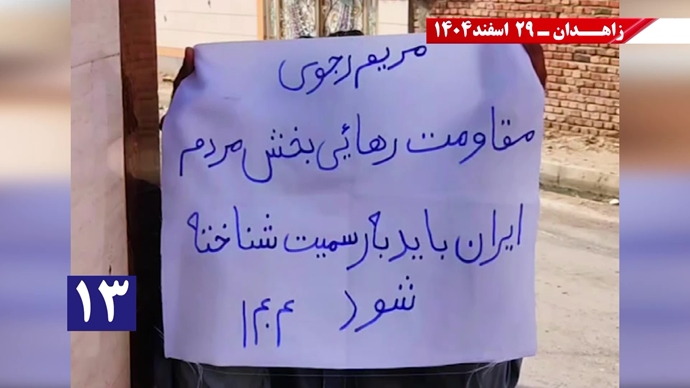 زاهـدان ـ ۲۹ اسفند۱۴۰۴
مریم رجوی
مقاومت رهائی بخش مردم
ایران باید به رسمیت شناخته
شود
۱۳